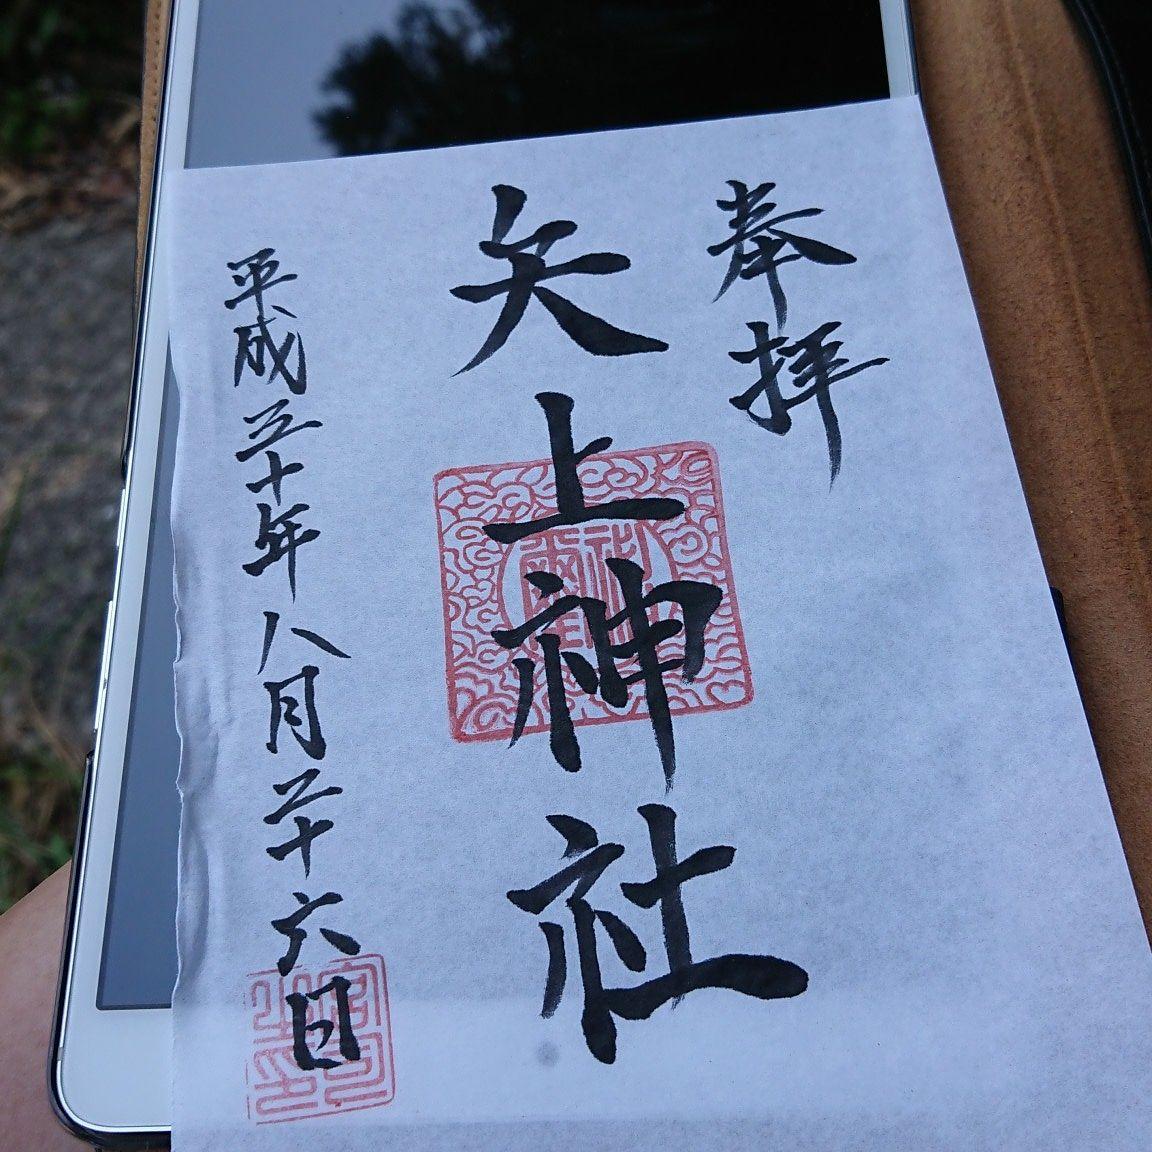 奉拝
矢上神社
平成三十年八月二十六日
宮司
之印